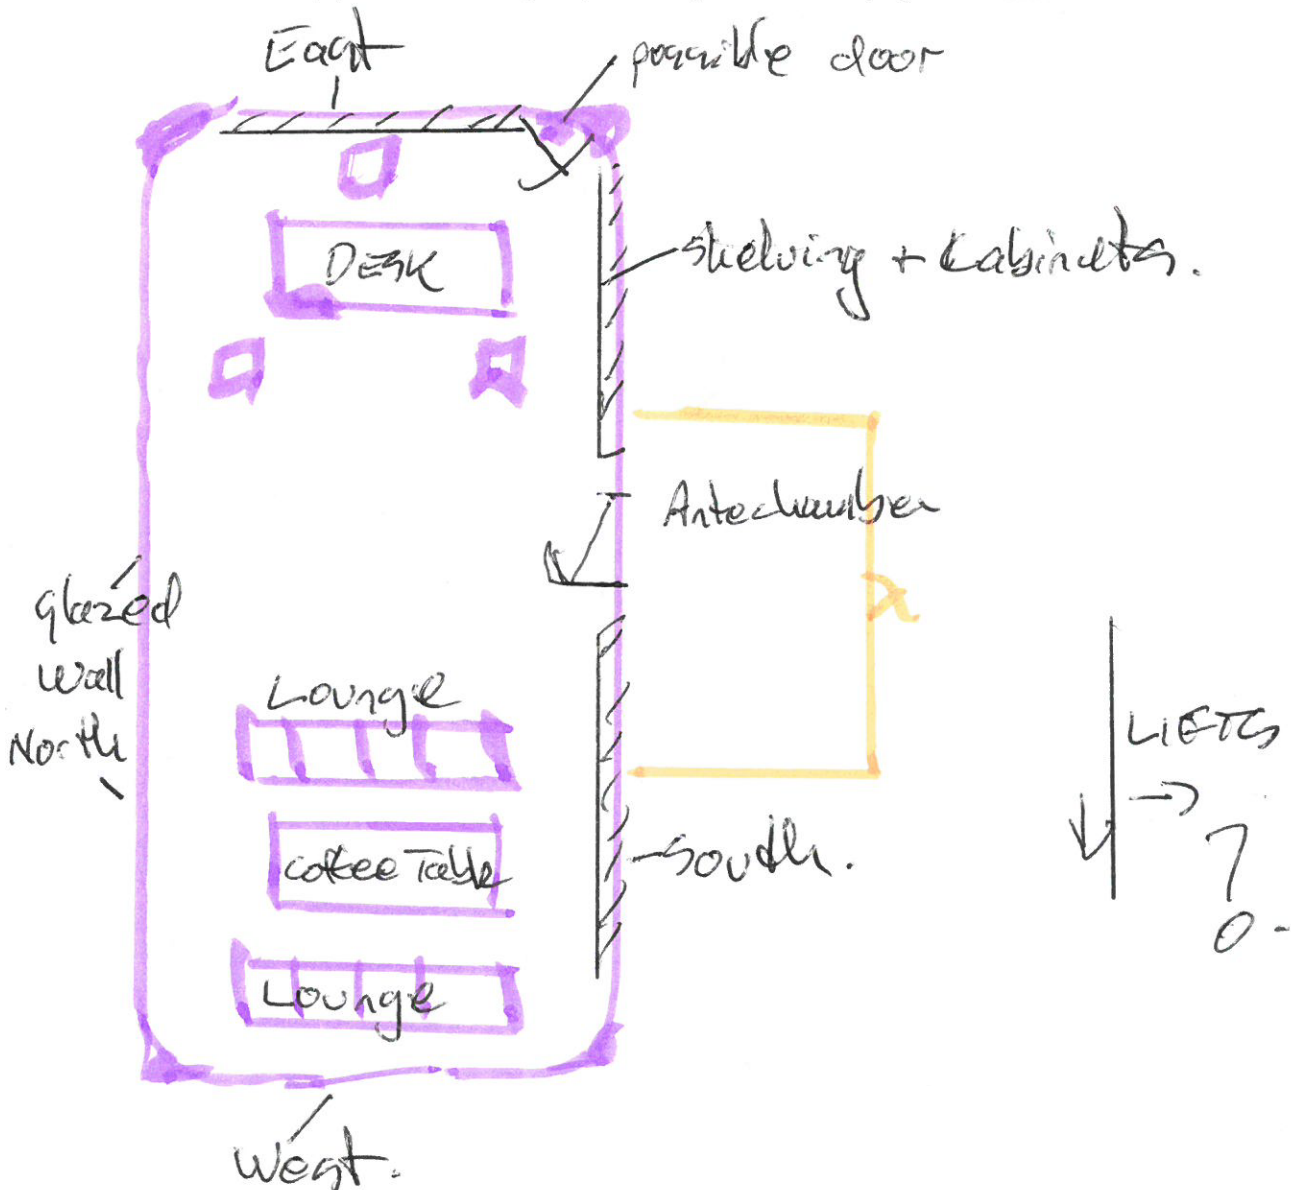 East
possible door
DESK
shelving + Cabinets.
Antechamber
glazed
wall
North
Lounge
LIFTS
?
coffee Table
South.
Lounge
West.